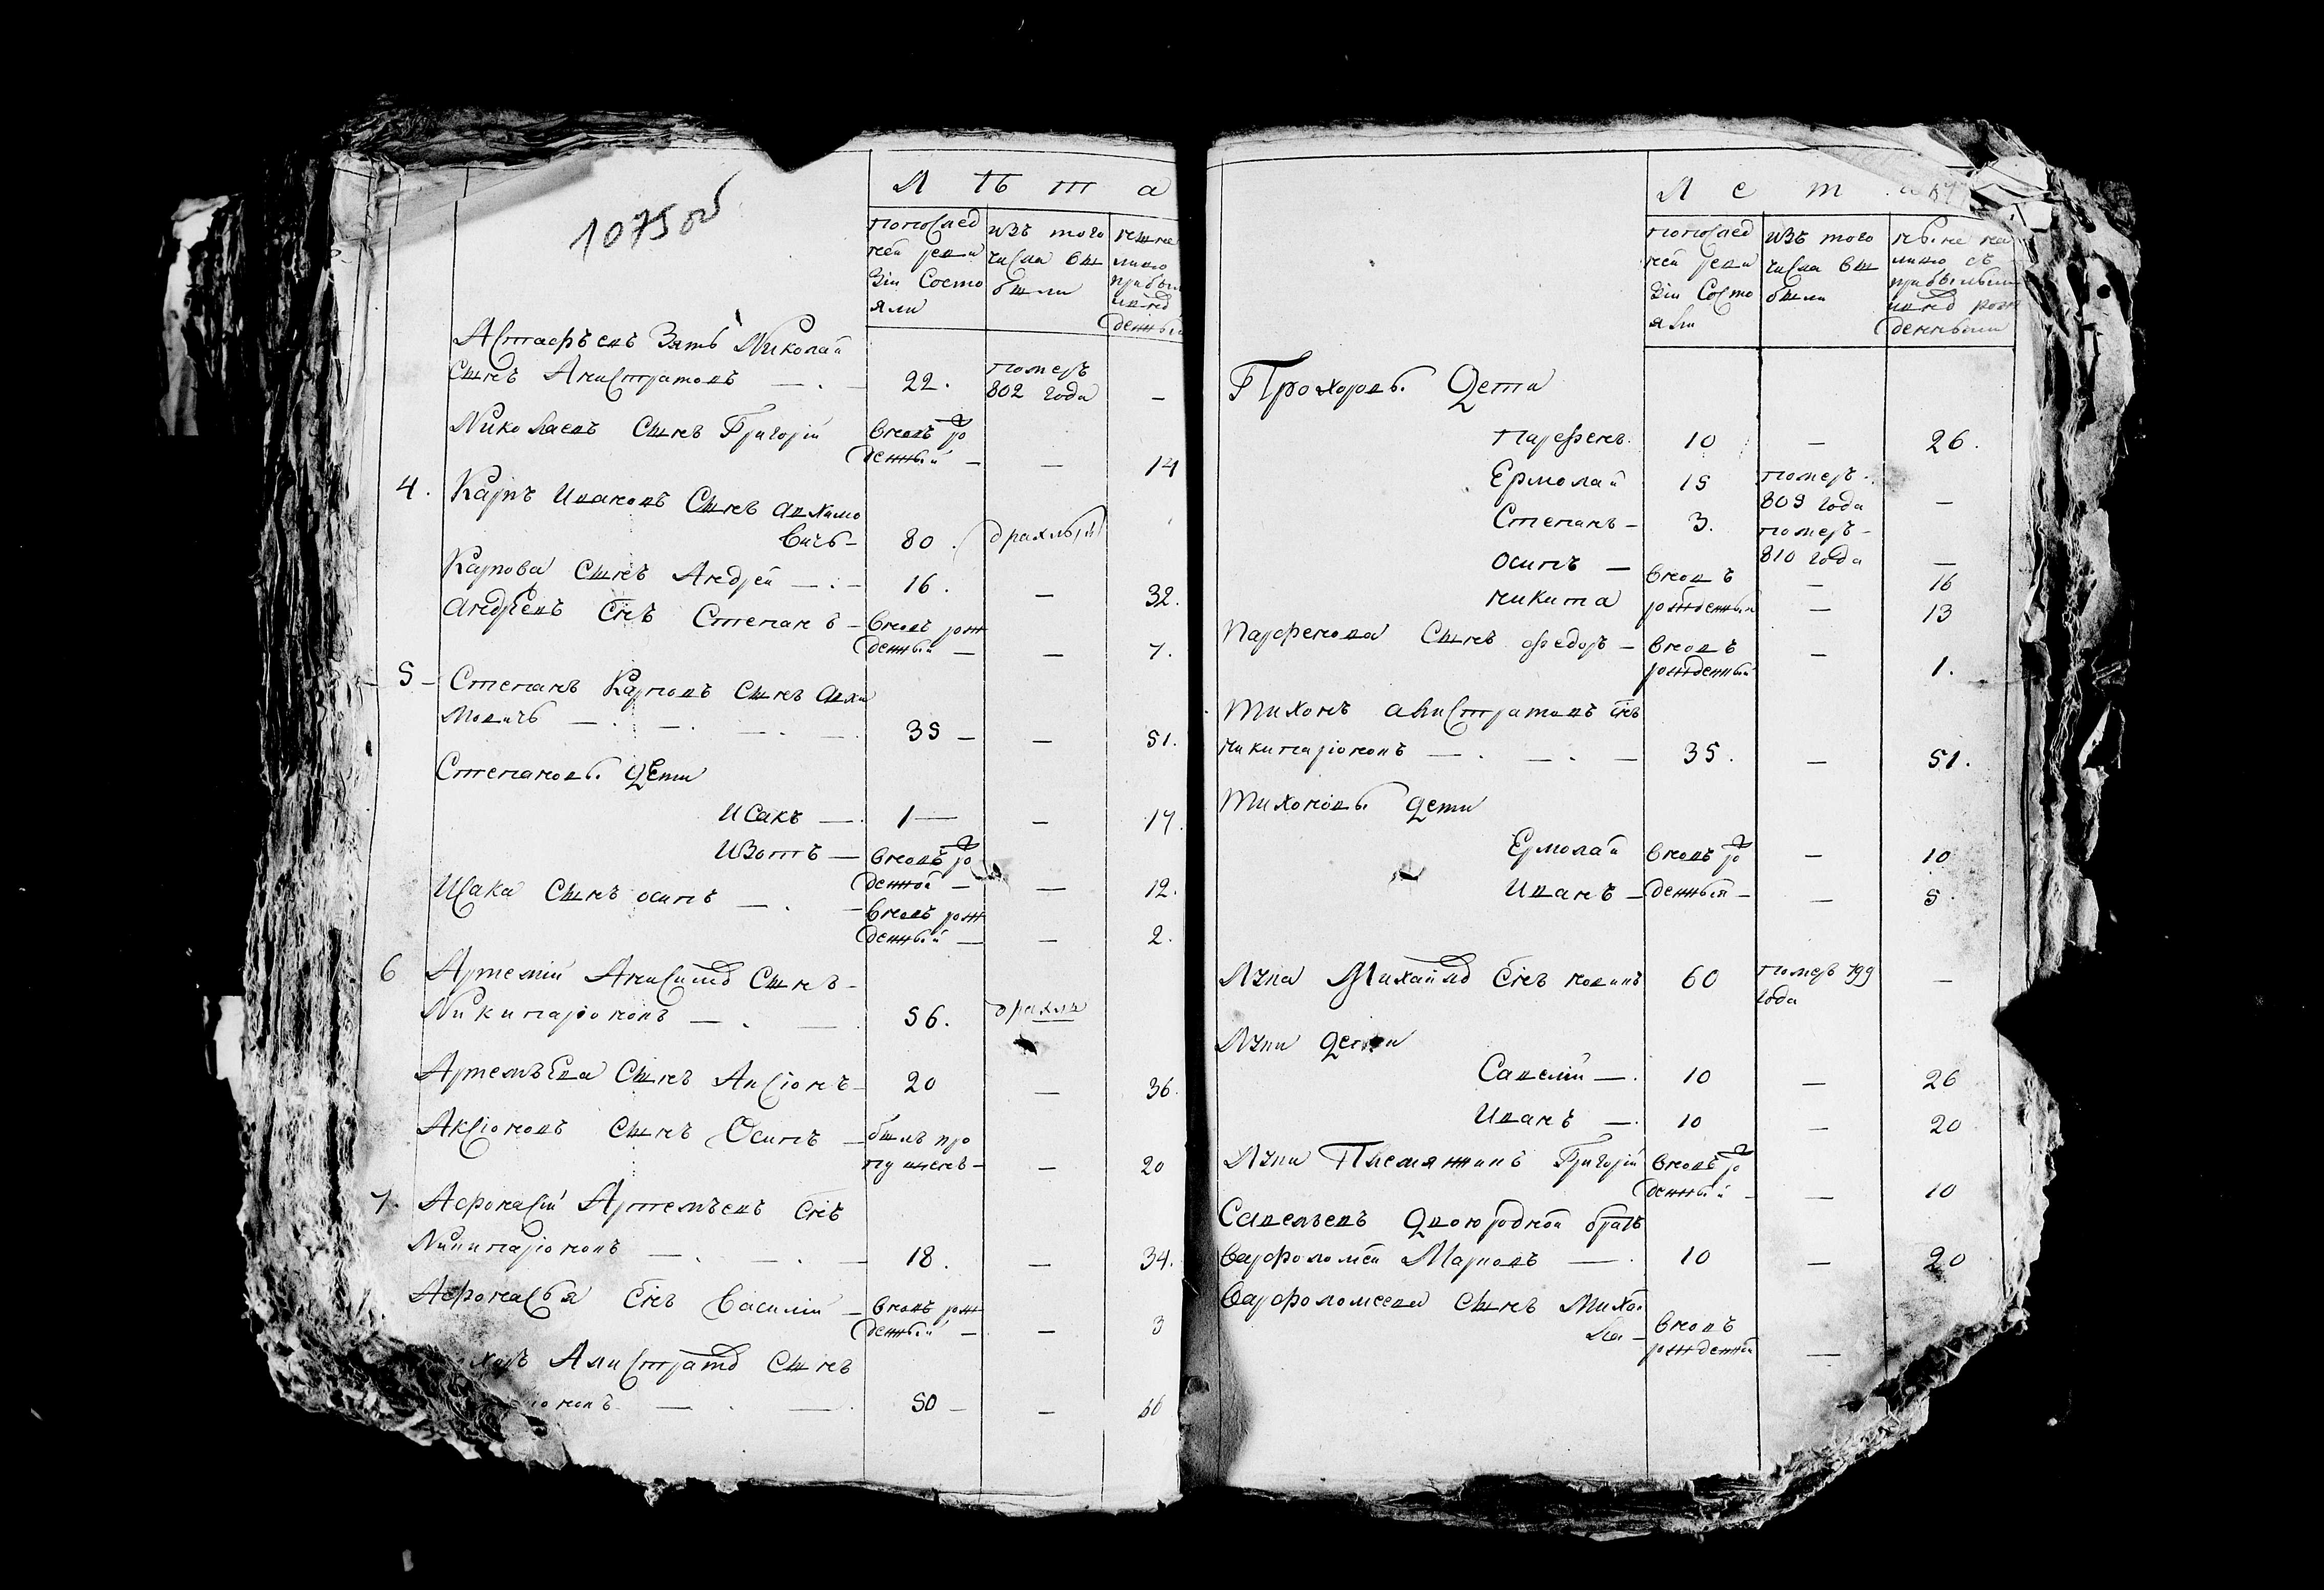 1075 об
Л Ѣ т а
попослед
ней реви
зіи Состо
яли
изъ того
числа вы
были
Астафьевъ Зять Николай
Сынъ Анистратовъ — 22. померъ
802 года —
Николаевъ Сынъ Григорій вновь ро
жденный — — 14
4. Карпъ Ивановъ Сынъ Авхимо
вичь — 80. дряхлый
Карпова Сынъ Андрей — 16. — 32.
Андреевъ Снъ Степанъ — вновь рож
денный — — 7.
5 — Степанъ Карповъ Сынъ Авхи
мовичь — 35 — — 51.
Степановы дети
Исакъ — 1 — — 17.
Изотъ — вновь ро
жденной — — 12.
Исака Сынъ осипъ — вновь рож
денный — — 2.
6 Артемій Сынъ —
Никипаріоновъ — 56. дряхлъ
Артемьева Сынъ Аксіонъ — 20 — 36.
Аксіоновъ Сынъ Осипъ — былъ про
пущенъ — — 20
7. Афонасій Артемьевъ Снъ
Никипаріоновъ — 18. — 34.
Афонасья Снъ Василій — вновь рож
денный — — 3
Анистратъ Сынъ
іоновъ — 50 — —
Л е т
попослед
ней реви
зіи Состо
яли
изъ того
числа вы
были
ныне на
лицо съ
прибылыми
рож
денными
Прохоровы Дети
парфенъ 10 — 26.
Ермолай 15 померъ
809 года —
Степанъ — 3. померъ —
810 года —
осипъ — вновь — 16
никита рожденный — 13
Парфенова Сынъ федоръ — вновь
рожденный — 1.
Тихонъ анистратовъ снъ
никипаріоновъ — 35. — 51.
Тихоновы дети
Ермолай вновь ро — 10
Иванъ — жденный — — 5
Лупа Михайло Снъ 60 померъ 799
года —
Лупи дети
Савелій — 10 — 26
Иванъ — 10 — 20
Лупи Племянникъ Григорій вновь ро
жденный — — 10
Савельевъ Двоюродной братъ
Варфоломей Марковъ — 10 — 20
Варфоломеева Сынъ Михаи
ла — вновь
рожденной —